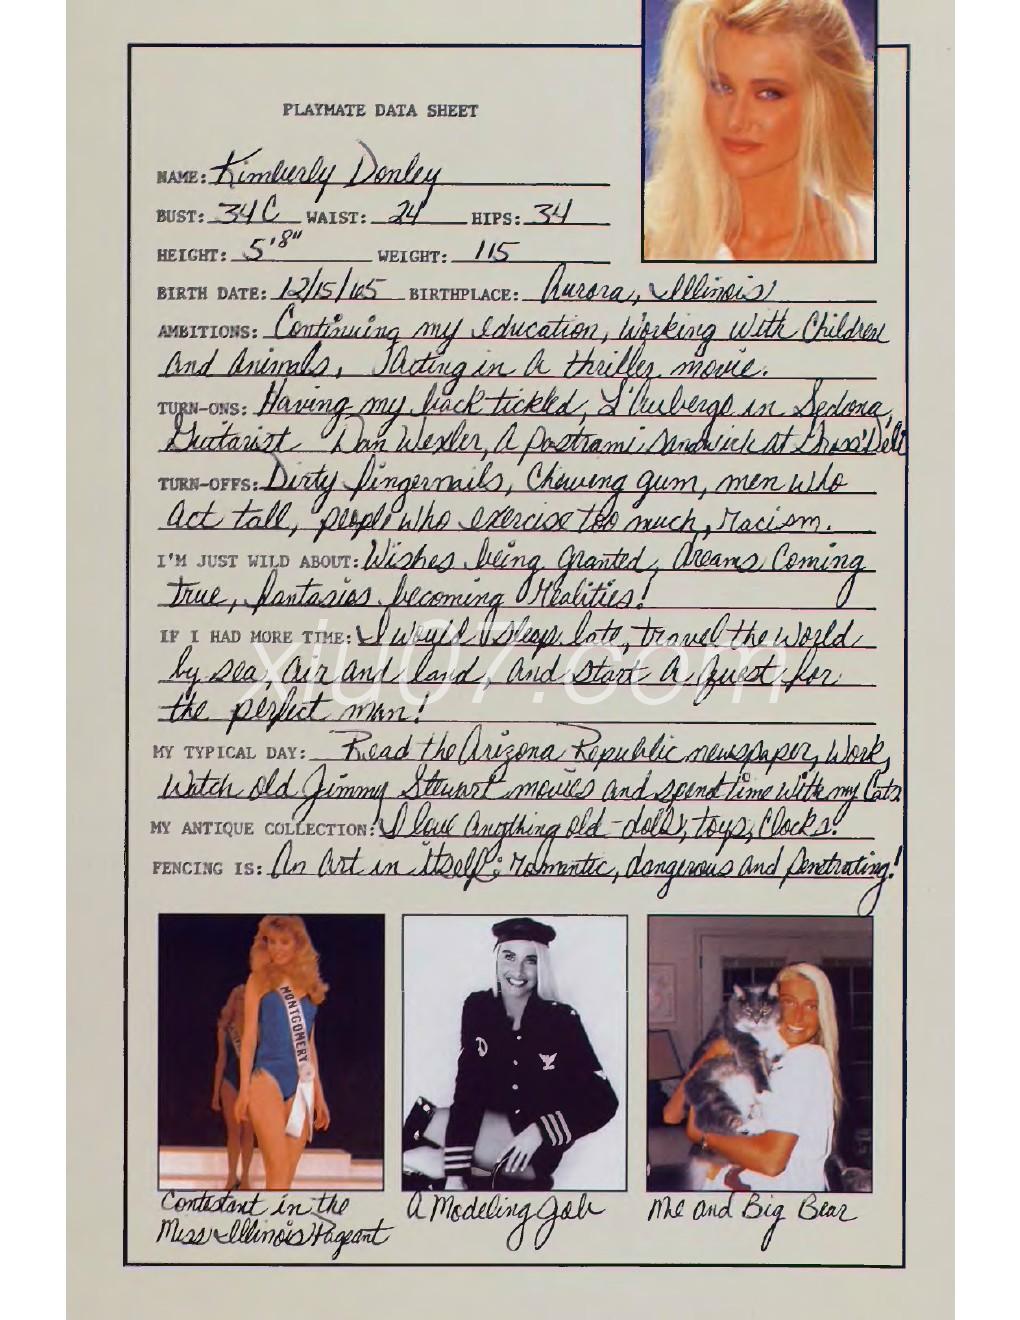 PLAYMATE DATA SHEET
NAME: Kimberly Donley
BUST: 34C WAIST: 24 HIPS: 34
HEIGHT: 5'8" WEIGHT: 115
BIRTH DATE: 12/15/65 BIRTHPLACE: Aurora, Illinois
AMBITIONS: Continuing my education, Working with Children
And Animals, Acting in A thriller movie.
TURN-ONS: Having my back tickled, L'Auberge in Sedona,
Guitarist Dan Wexler, A Pastrami Sandwich At Gross' Deli
TURN-OFFS: Dirty fingernails, Chewing gum, men who
Act tall, people who exercise too much, racism.
I'M JUST WILD ABOUT: Wishes being granted, dreams Coming
true, fantasies becoming Realities!
IF I HAD MORE TIME: I would sleep late, travel the World
by sea, Air and land, And start A Quest for
the perfect man!
xiu07.com
MY TYPICAL DAY: Read the Arizona Republic newspaper, Work,
Watch old Jimmy Stewart movies and spend time with my Cats.
MY ANTIQUE COLLECTION: I love Anything old - dolls, toys, Clocks!
FENCING IS: An Art in itself; romantic, dangerous And penetrating!
MONTGOMERY
Contestant in the
Miss Illinois Pageant
A Modeling Job
Me And Big Bear